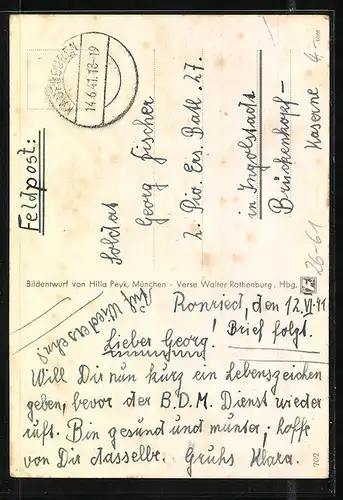 Feldpost:
14.6.41.18-19
Soldat
Georg Fischer
2. Pio. Ers. Batl. 27.
in Ingolstadt
Brückenkopf-
Kaserne
26-61
Bildentwurf von Hilla Peyk, München - Verse Walter Rothenburg, Hbg.
Auf Wiedersehn!
Ronried, den 12.VI.41
Brief folgt.
Lieber Georg!
Will Dir nun kurz ein Lebenszeichen
geben, bevor der B.D.M. Dienst wieder
ruft. Bin gesund und munter, hoffe
von Dir dasselbe. Gruhs Klara.
702